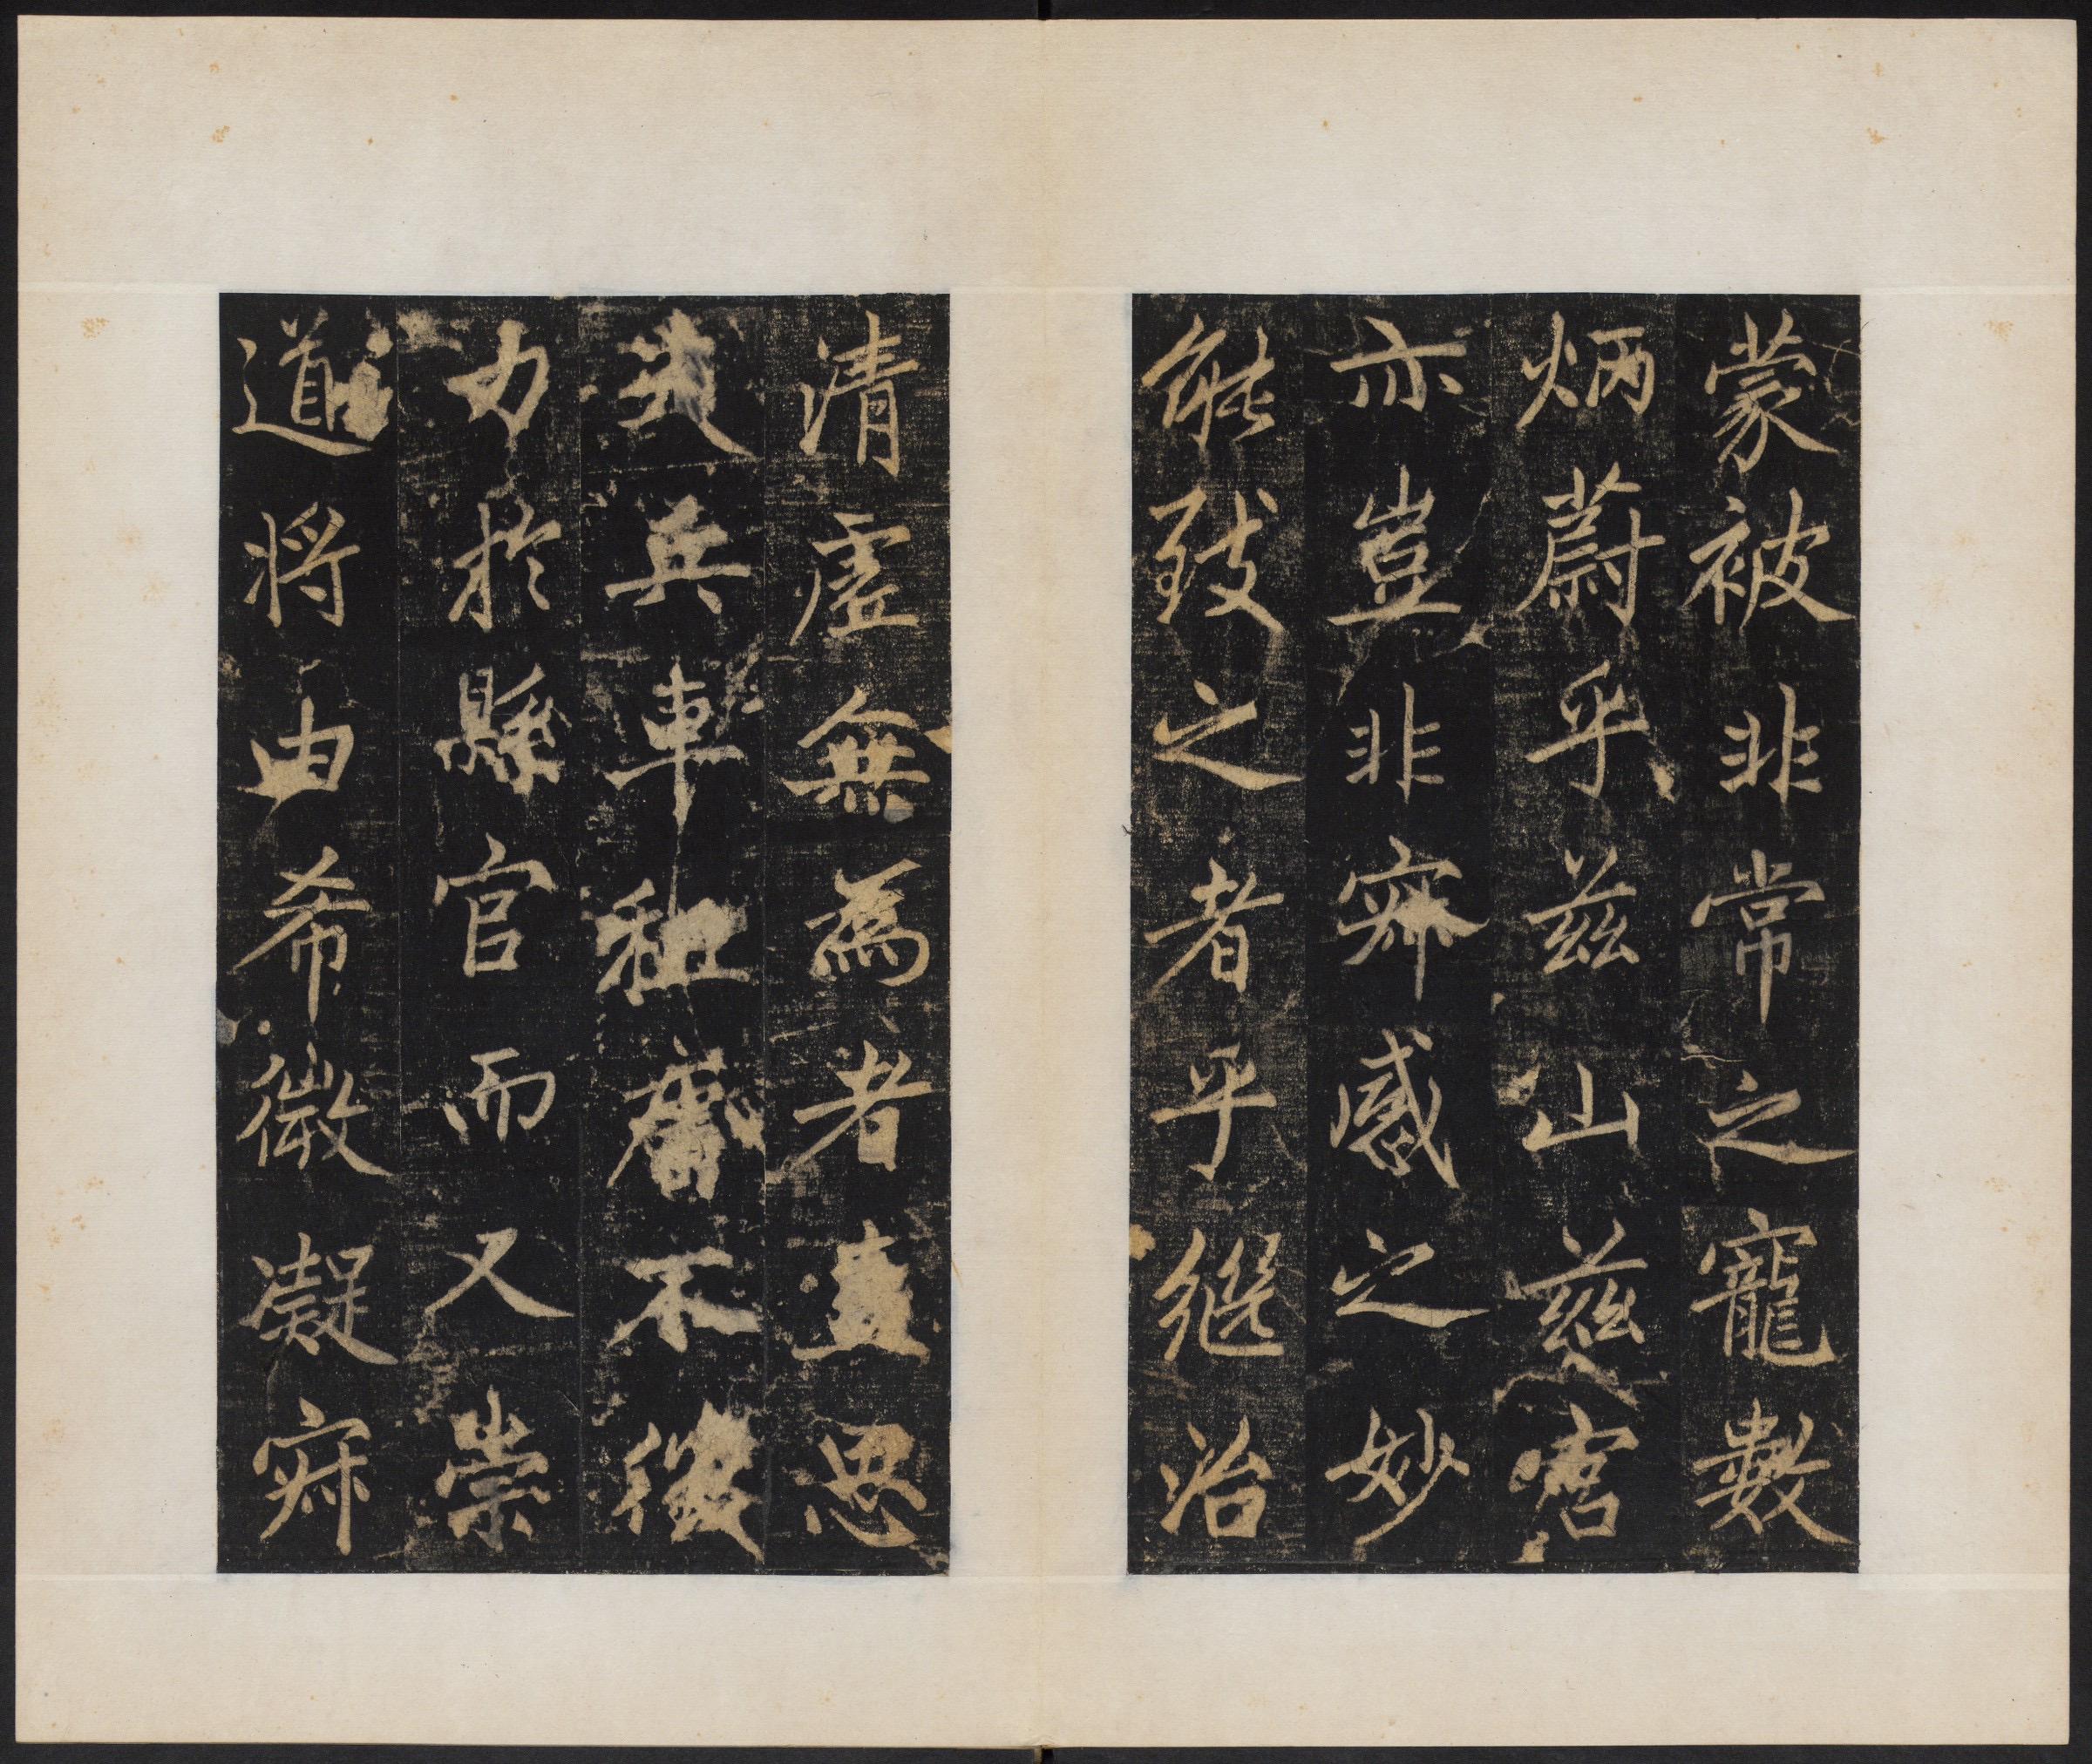 蒙被非常之寵數
炳蔚乎茲山茲宮
亦豈非寂感之妙
能致之者乎繼治
清虛無為者直思
兵車租不
力於縣官而又崇
道將由希微凝寂